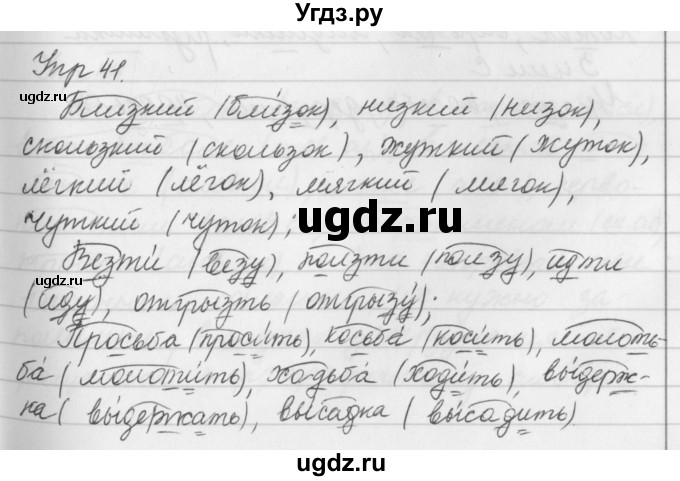 Угдз.ру
Упр 41.
Близкий (близок), низкий (низок),
скользкий (скользок), жуткий (жуток),
лёгкий (лёгок), мягкий (мягок),
чуткий (чуток);
Везти (везу), ползти (ползу), идти
(иду), отгрызть (отгрызу);
Просьба (просить), косьба (косить), молоть-
ба (молотить), ходьба (ходить), выдерж-
ка (выдержать), высадка (высадить)
ugdz.ru
ugdz.ru
ugdz.ru
ugdz.ru
ugdz.ru
ugdz.ru
ugdz.ru